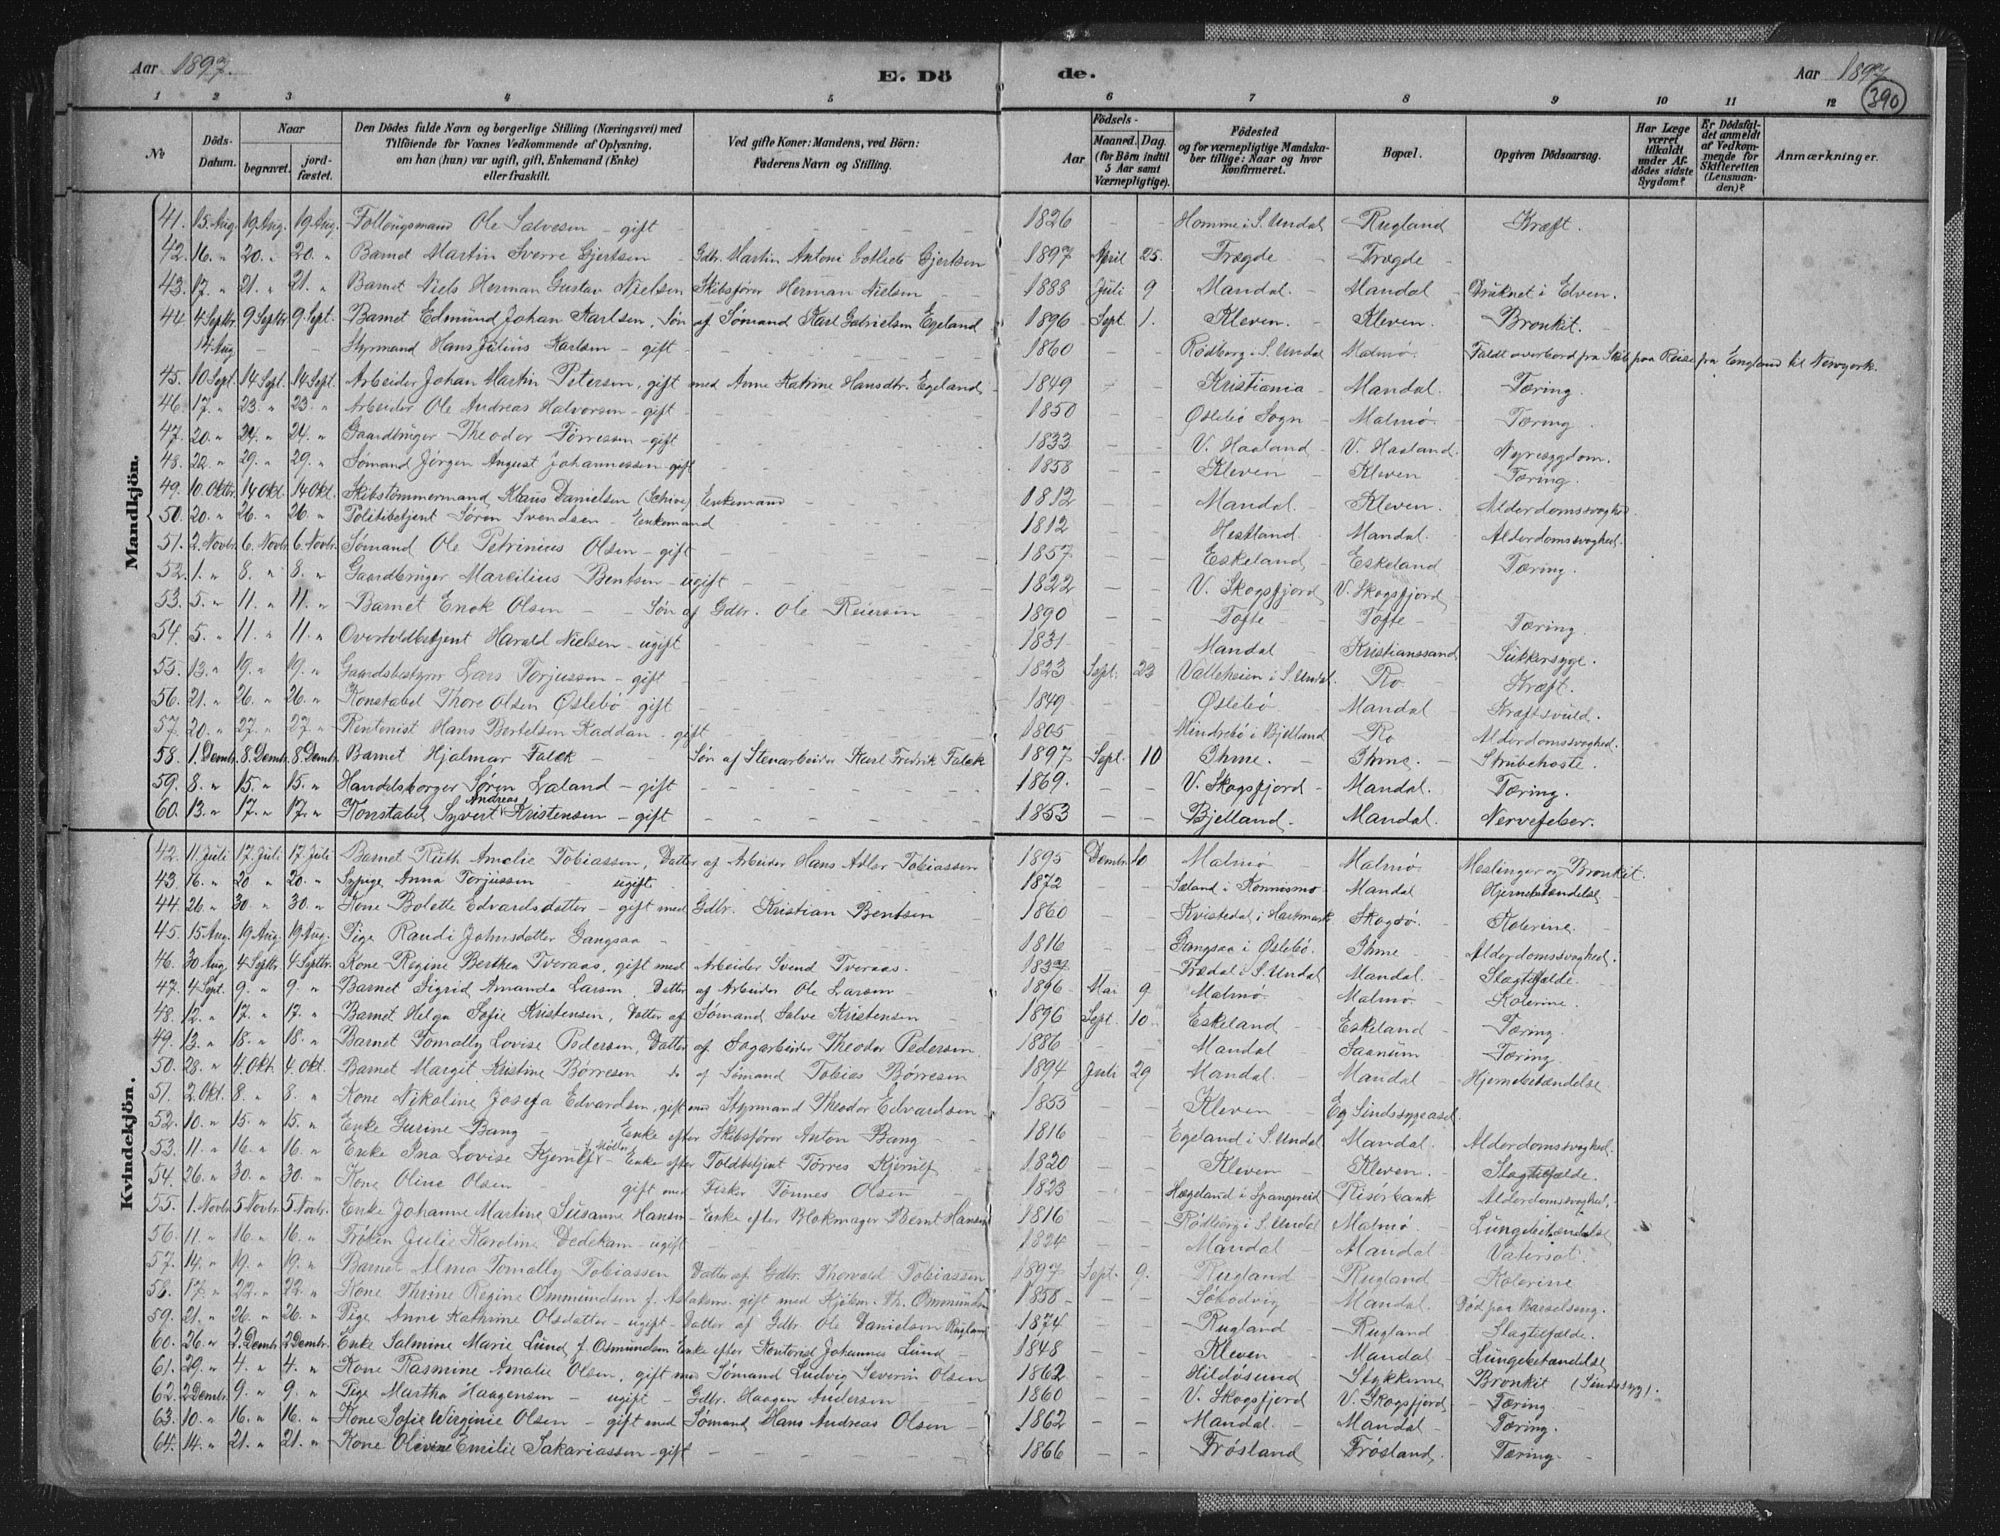 Aar 1897. E. Dö de. Aar 1897
390
1 2 3 4 5 6 7 8 9 10 11 12
No Döds-Datum. Naar begravet. jordfæstet. Den Dödes fulde Navn og borgerlige Stilling (Næringsvei) med Tilföiende for Voxnes Vedkommende af Oplysning, om han (hun) var ugift, gift, Enkemand (Enke) eller fraskilt. Ved gifte Koner: Mandens, ved Börn: Faderens Navn og Stilling. Födsels- Aar Maaned. Dag. (for Börn indtil 5 Aar samt Værnepligtige). Födested og for værnepligtige Mandskaber tillige: Naar og hvor konfirmeret. Bopæl. Opgiven Dödsaarsag. Har Læge været tilkaldt under Afdödes sidste Sygdom? Er Dödsfaldet anmeldt af Vedkommende for Skifteretten (Lensmanden)? Anmærkninger.
Mandkjön.
41. 15 Aug. 19 Aug. 19 Aug. Ole Salvesen – gift – 1826 – – Homme i S. Undal Rugland Kræft.
42. 16. " 20. " 20. " Barnet Martin Sverre Gjertsen Gdbr. Martin Antoni Gjertsen 1897 April 25. Frøgde – Frøgde –
43. 17. " 21. " 21. " Barnet Niels Herman Gustav Nielsen Skibsfører Herman Nielsen – 1888 Juli 9 Mandal – Mandal – Druknet i Elven.
44. 4 Septbr. 9 Septbr. 9 Sept. Barnet Edmund Johan Karlsen, Søn af Sømand Karl Gabrielsen Egeland 1896 Sept. 1. Kleven. – Kleven. – Bronkit.
14 Aug – – Styrmand Hans Julius Karlsen – gift – 1860 – – Rødberg i S. Undal Malmø. Faldt overbord fra Skib paa Reise fra England til Newyork.
45. 10 Sept. 14 Sept. 14 Sept. Arbeider Johan Martin Petersen, gift med Anne Katrine Hansdtr. Egeland 1849 – – Kristiania – Mandal. Tæring.
46. 17. " 23. " 23. " Arbeider Ole Andreas Halvorsen – gift – 1850 – – Øslebø Sogn – Malmø. Tæring.
47. 20. " 24. " 24. " Gaardbruger Theodor Tørresen – gift – 1833 – – V. Haaland – V. Haaland. Nyresygdom.
48. 22. " 29. " 29. " Sømand Jørgen August Johannessen – gift 1858 – – Kleven – Kleven – Tæring.
49. 10 Oktbr. 14 Okt. 14 Okt. Skibstømmermand Klaus Danielsen (Schive) Enkemand – 1812 – – Mandal. – Kleven. Alderdomssvaghed
50. 20. " 26. " 26. " Politibetjent Søren Svendsen – Enkemand 1812 – – Hestland. – Mandal. Alderdomssvaghed.
51. 2. Novbr. 6. Novbr. 6. Novbr. Sømand Ole Petrinius Olsen – gift 1857 – – Eskeland – Eskeland Tæring.
52. 1. " 8. " 8. " Gaardbruger Marcilius Bentsen – ugift – 1822 – – V. Skogsfjord V. Skogsfjord –
53. 5. " 11. " 11. " Barnet Enok Olsen – – Søn af Gdbr. Ole Reiersen 1890 – – Tofte – Tofte – Tæring.
54. 5. " 11. " 11. " Overtoldbetjent Harald Nielsen – ugift – 1831 – – Mandal – Kristianssand Sukkersyge.
55. 13. " 19. " 19. " Gaardsbestyrer Lars Torjussen – gift – 1823 Sept. 23 Valleheien i S. Undal Ro Kræft.
56. 21. " 26. " 26. " Konstabel Thore Olsen Øslebø gift – 1849 – – Øslebø – Mandal – Kræftsvuld.
57. 20. " 27. " 27. " Rentenist Hans Bertelsen Kaddan – gift 1805 – – Mindrebø i Bjelland Ro – Alderdomssvaghed.
58. 1. Dembr. 8. Dembr. 8. Dembr. Barnet Hjalmar Falck – – Søn af Stenarbeider Karl Fredrik Falck 1897 Sept. 10 Ihme. – Ihme. – Strubehoste.
59. 8. " 15. " 15. " Handelsborger Søren Laland – gift – 1869. – – V. Skogsfjord – Mandal. Tæring.
60. 13. " 17. " 17. " Konstabel Syvert Andreas Kristensen – gift – 1853 – – Bjelland. – Mandal. Nervefeber.
Kvindekjön.
42. 11. Juli 17. Juli 17 Juli Barnet Ruth Amelie Tobiassen, Datter af Arbeider Hans Adler Tobiassen 1895 Dembr. 10 Malmø – Malmø – Meslinger og Bronkit.
43. 16. " 20 " 20. " Sypige Anna Torjussen – ugift. – 1872 – – i Konnismo – Mandal Hjernebetændelse
44. 26. " 30 " 30. " Kone Bolette Edvardsdatter – gift med Gdbr. Kristian Bentsen 1860 – – Kvistedal i Hartmark Skogsø. – Kolerine.
45. 15 Aug. 19 Aug. 19 Aug. Pige Randi Johnsdatter Gangsaa – 1816 – – Gangsaa i Øslebø. Ihme – Alderdomssvaghed.
46. 30 Aug. 4 Septbr. 4 Septbr. Kone Regine Berthea Tveraas, gift med Arbeider Svend Tveraas. – – Frædal i S. Undal Mandal – Slagtilfælde
47. 4 Sept. 9. " 9. " Barnet Sigrid Amanda Larsen, Datter af Arbeider Ole Larsen 1896 Mai 9 Malmø. – Malmø. – Kolerine.
48. 12. " 17. " 17. " Barnet Helga Sofie Kristensen, Datter af Sømand Salve Kristensen – 1896 Sept. 10. Eskeland – Eskeland – Tæring.
49. 13. " 18. " 18. " Barnet Tomally Lovise Pedersen, Datter af Sagarbeider Theodor Pedersen. 1886 – – Mandal – Saanum – Tæring.
50. 28. " 4. Okt. 4. Okt. Barnet Margit Kristine Børresen do af Sømand Tobias Børresen 1894 Juli 29 Mandal. – Mandal – Hjernebetændelse
51. 2 Okt. 8. " 8. " Kone Nikoline Josefa Edvardsen, gift med Styrmand Theodor Edvardsen 1855 – – Kleven – Eg Sindssygeasyl
52. 10. " 15. " 15. " Enke Gurine Bang – Enke efter Skibsfører Anton Bang – 1816 – – Egeland i S. Undal Mandal. Alderdomssvaghed.
53. 11. " 16. " 16. " Enke Ina Lovise Kjerulf f. Møller – Enke efter Toldbetjent Tørres Kjerulf 1820 – – Kleven – Kleven. – Slagtilfælde
54. 26. " 30. " 30. " Kone Oline Olsen – gift med Fisker Tønnes Olsen – 1823 – – Hægeland i Spangereid Risørbank Alderdomssvaghed.
55. 1. Novbr. 5 Novbr. 5 Novbr. Enke Johanne Martine Susanne Hansen – Enke efter Blokmager Bernt Hansen 1816 – – Rødberg i S. Undal Malmø Lungebetændelse
56. 11. " 16. " 16. " Frøken Julie Karoline Dedekam – ugift – 1824 – – Mandal – Mandal. Vatersot.
57. 14. " 19. " 19. " Barnet Alma Tomally Tobiassen Datter af Gdbr. Thorvald Tobiassen 1897 Sept. 9. Rugland – Rugland – Kolerine
58. 17. " 22. " 22. " Kone Thrine Regine Ommundsen f. Aslaksen. gift med Th. Ommundsen 1858 – – Mandal. Død paa Barselseng.
59. 21. " 26. " 26. " Pige Anne Kathrine Olsdatter – ugift – Datter af Gdbr. Ole Danielsen Rugland 1874 – – Rugland – Rugland – Slagtilfælde.
60. 26. " 2. Dembr. 2 Dembr. Enke Salmine Marie Lund f. Osmundsen Enke efter Kontorist Johannes Lund – 1848 – – Kleven – Mandal – Lungebetændelse
61. 29. " 4. " 4. " Kone Rasmine Amalie Olsen, gift med Sømand Ludvig Severin Olsen 1862 – – Hildøsund – Stykkerne Bronkit (Sindssyg).
62. 2 Dembr. 9. " 9. " Pige Martha Haagensen – ugift – Gdbr. Haagen Andersen – 1860 – – V. Skogsfjord V. Skogsfjord – Tæring.
63. 10. " 16. " 16. " Kone Sofie Wirginie Olsen – gift med Sømand Hans Andreas Olsen – 1862 – – Mandal. – Mandal – Tæring.
64. 14. " 21. " 21. " Kone Olivine Emilie Sakariassen – gift – 1866 – – Frøsland – Frøsland. Tæring.